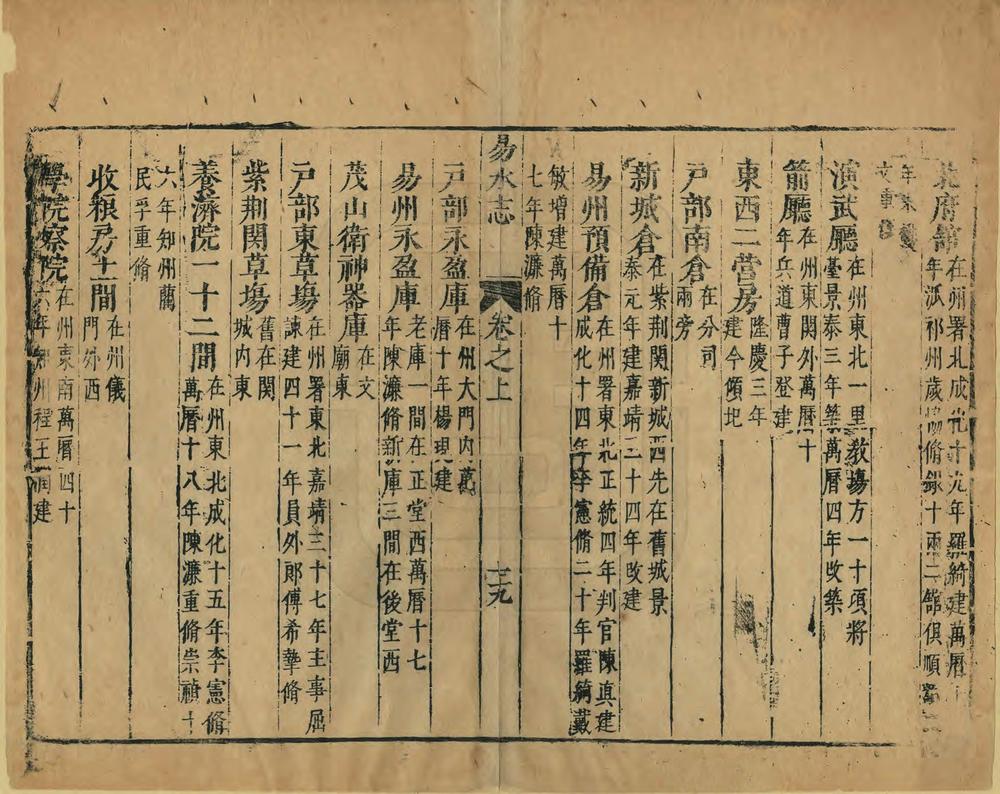 北府舘在州署北成化十九年羅綺建萬曆十
年派祁州歲脩銀十兩二舘俱順
年
文重脩
演武廳在州東北一里教場方一十頃將
臺景泰三年築萬曆四年改築
箭廳在州東関外萬曆十
年兵道曹子登建
東西二營房隆慶三年
建今傾圯
戶部南倉在分司
兩旁
新城倉在紫荆関新城西先在舊城景
泰元年建嘉靖三十四年改建
易州預備倉在州署東北正統四年判官陳真建
成化十四年李憲脩二十年羅綺戴
敏增建萬曆十
七年陳濂脩
易水志 卷之上 三九
戶部永盈庫在州大門內萬
曆十年楊現建
易州永盈庫老庫一間在正堂西萬曆十七
年陳濂脩新庫三間在後堂西
茂山衛神器庫在文
廟東
戶部東草塲在州署東北嘉靖三十七年主事屈
諫建四十一年員外郎傅希摯脩
紫荆関草塲舊在関
城內東
養濟院一十二間在州東北成化十五年李憲脩
萬曆十八年陳濂重脩崇禎十
六年知州藺
民孚重脩
收粮房十間在州儀
門外西
學院察院在州東南萬曆四十
六年知州程王建